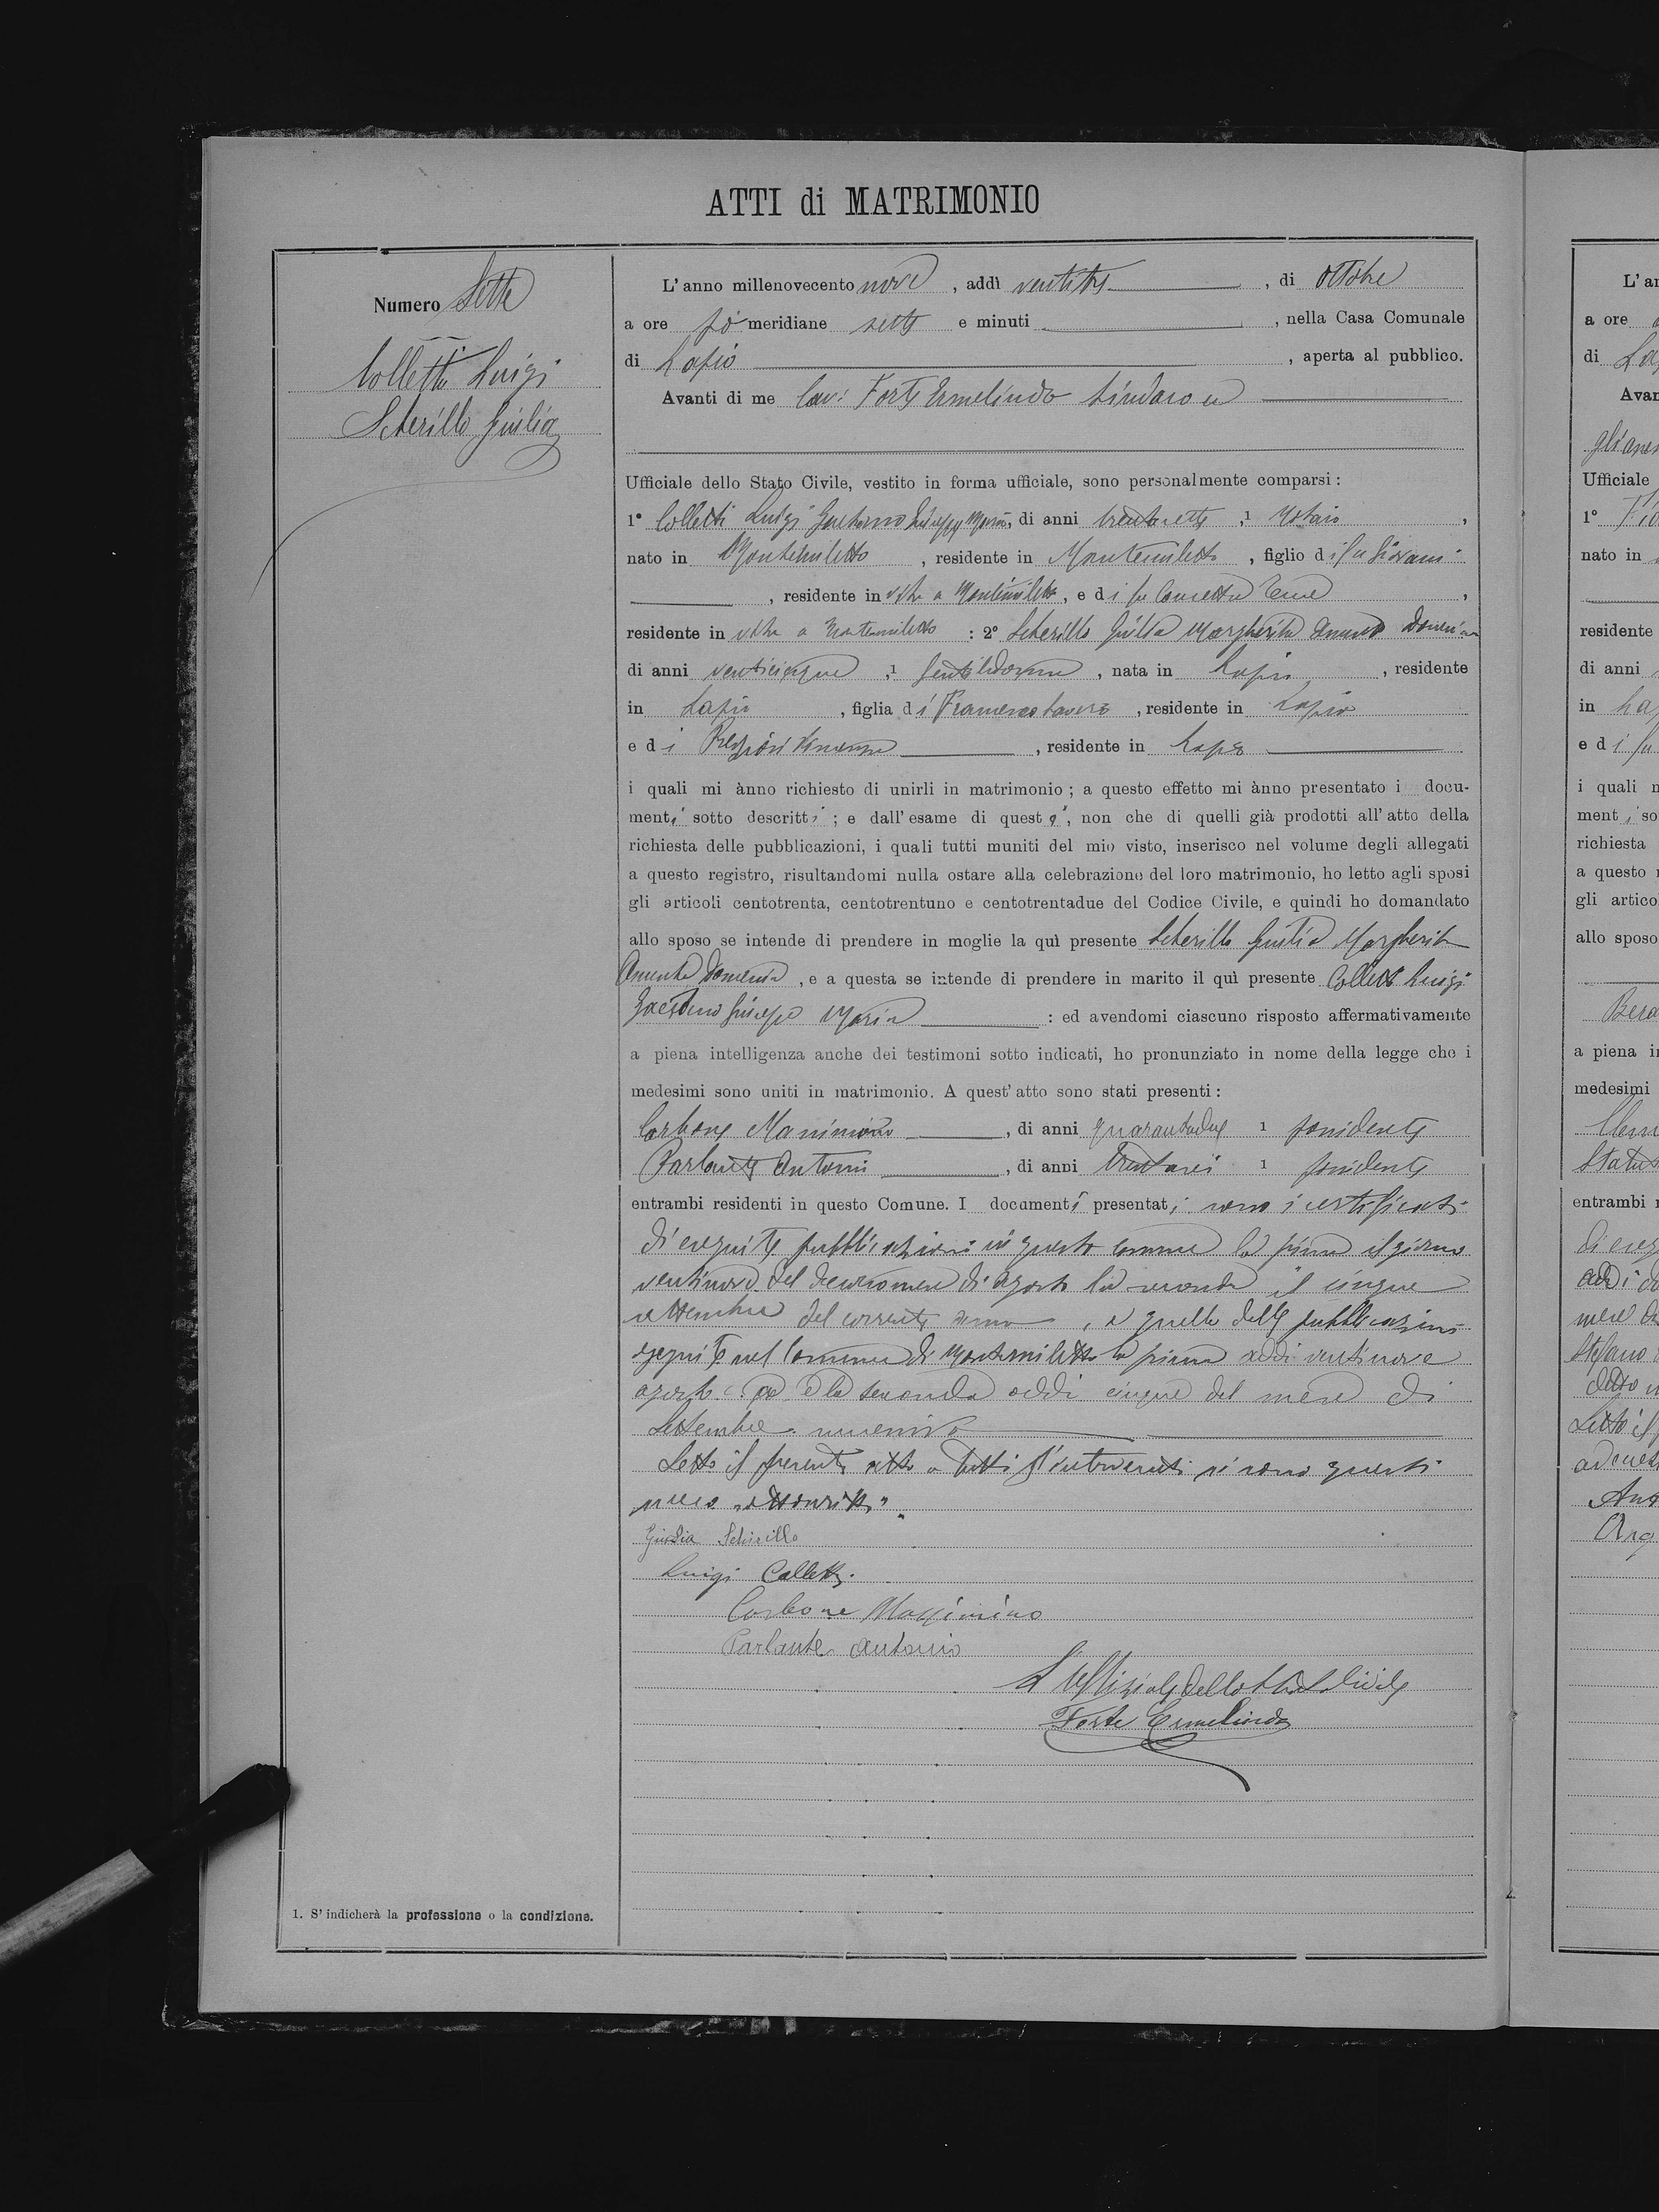 ATTI di MATRIMONIO
Numero Sette
Colletti Luigi
Scherillo Giulia
L'anno millenovecento nove, addì ventitre, di Ottobre
a ore po meridiane sette e minuti, nella Casa Comunale
di Lapio, aperta al pubblico.
Avanti di me Cav: Forte Ermelindo Sindaco ed
Ufficiale dello Stato Civile, vestito in forma ufficiale, sono personalmente comparsi:
1° Colletti Luigi Gaetano Giuseppe Maria, di anni trentasette, 1 Notaio,
nato in Montemiletto, residente in Montemiletto, figlio di fu Giovanni
, residente in vita a Montemiletto, e di fu Concetta,
residente in vita a Montemiletto: 2° Scherillo Giulia Margherita Domenica
di anni venticinque, 1 Gentildonna, nata in Lapio, residente
in Lapio, figlia di Francesco Saverio, residente in Lapio
e di Vincenza, residente in Lapio
i quali mi ànno richiesto di unirli in matrimonio; a questo effetto mi ànno presentato i docu-
menti sotto descritti; e dall'esame di questi, non che di quelli già prodotti all'atto della
richiesta delle pubblicazioni, i quali tutti muniti del mio visto, inserisco nel volume degli allegati
a questo registro, risultandomi nulla ostare alla celebrazione del loro matrimonio, ho letto agli sposi
gli articoli centotrenta, centotrentuno e centotrentadue del Codice Civile, e quindi ho domandato
allo sposo se intende di prendere in moglie la quì presente Scherillo Giulia Margherita
Domenica, e a questa se intende di prendere in marito il quì presente Colletti Luigi
Gaetano Giuseppe Maria: ed avendomi ciascuno risposto affermativamente
a piena intelligenza anche dei testimoni sotto indicati, ho pronunziato in nome della legge che i
medesimi sono uniti in matrimonio. A quest'atto sono stati presenti:
Carbone Massimino, di anni quarantadue 1 possidente
Parlante Antonio, di anni trentasei 1 possidente
entrambi residenti in questo Comune. I documenti presentati sono i certificati
di eseguite pubblicazioni in questo comune la prima il giorno
ventinove del decorso mese di Agosto la seconda il cinque
settembre del corrente anno, e quello delle pubblicazioni
eseguite nel Comune di Montemiletto la prima addì ventinove
agosto e la seconda addì cinque del mese di
Settembre
Letto il presente atto a tutti gl'intervenuti si sono questi
meco sottoscritti.
Giulia Scherillo
Luigi Colletti
Carbone Massimino
Parlante Antonio
L'Uffiziale dello Stato Civile
Forte Ermelindo
1. S'indicherà la professione o la condizione.
L'a
a ore
di La
Avan
Ufficiale
1°
nato in
residente
di anni
in La
e di fu
i quali
menti so
richiesta
a questo
gli artico
allo sposo
a piena i
medesimi
entrambi